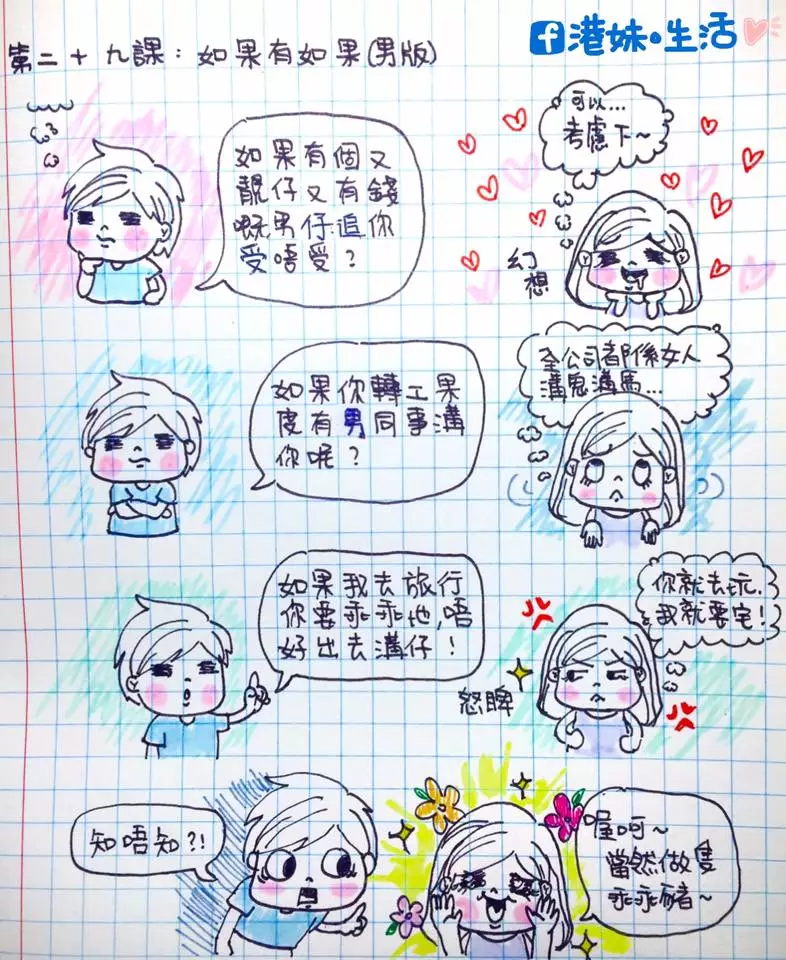 港妹•生活
第二十九課:如果有如果(男版)
如果有個又
靚仔又有錢
嘅男仔追你
受唔受?
可以...
考慮下~
幻
想
如果你轉工果
度有男同事溝
你呢?
全公司都係女人
溝鬼溝馬...
如果我去旅行
你要乖乖地,唔
好出去溝仔!
你就去玩.
我就要宅!
怒睥
知唔知?!
喔呵~
當然做隻
乖乖豬~